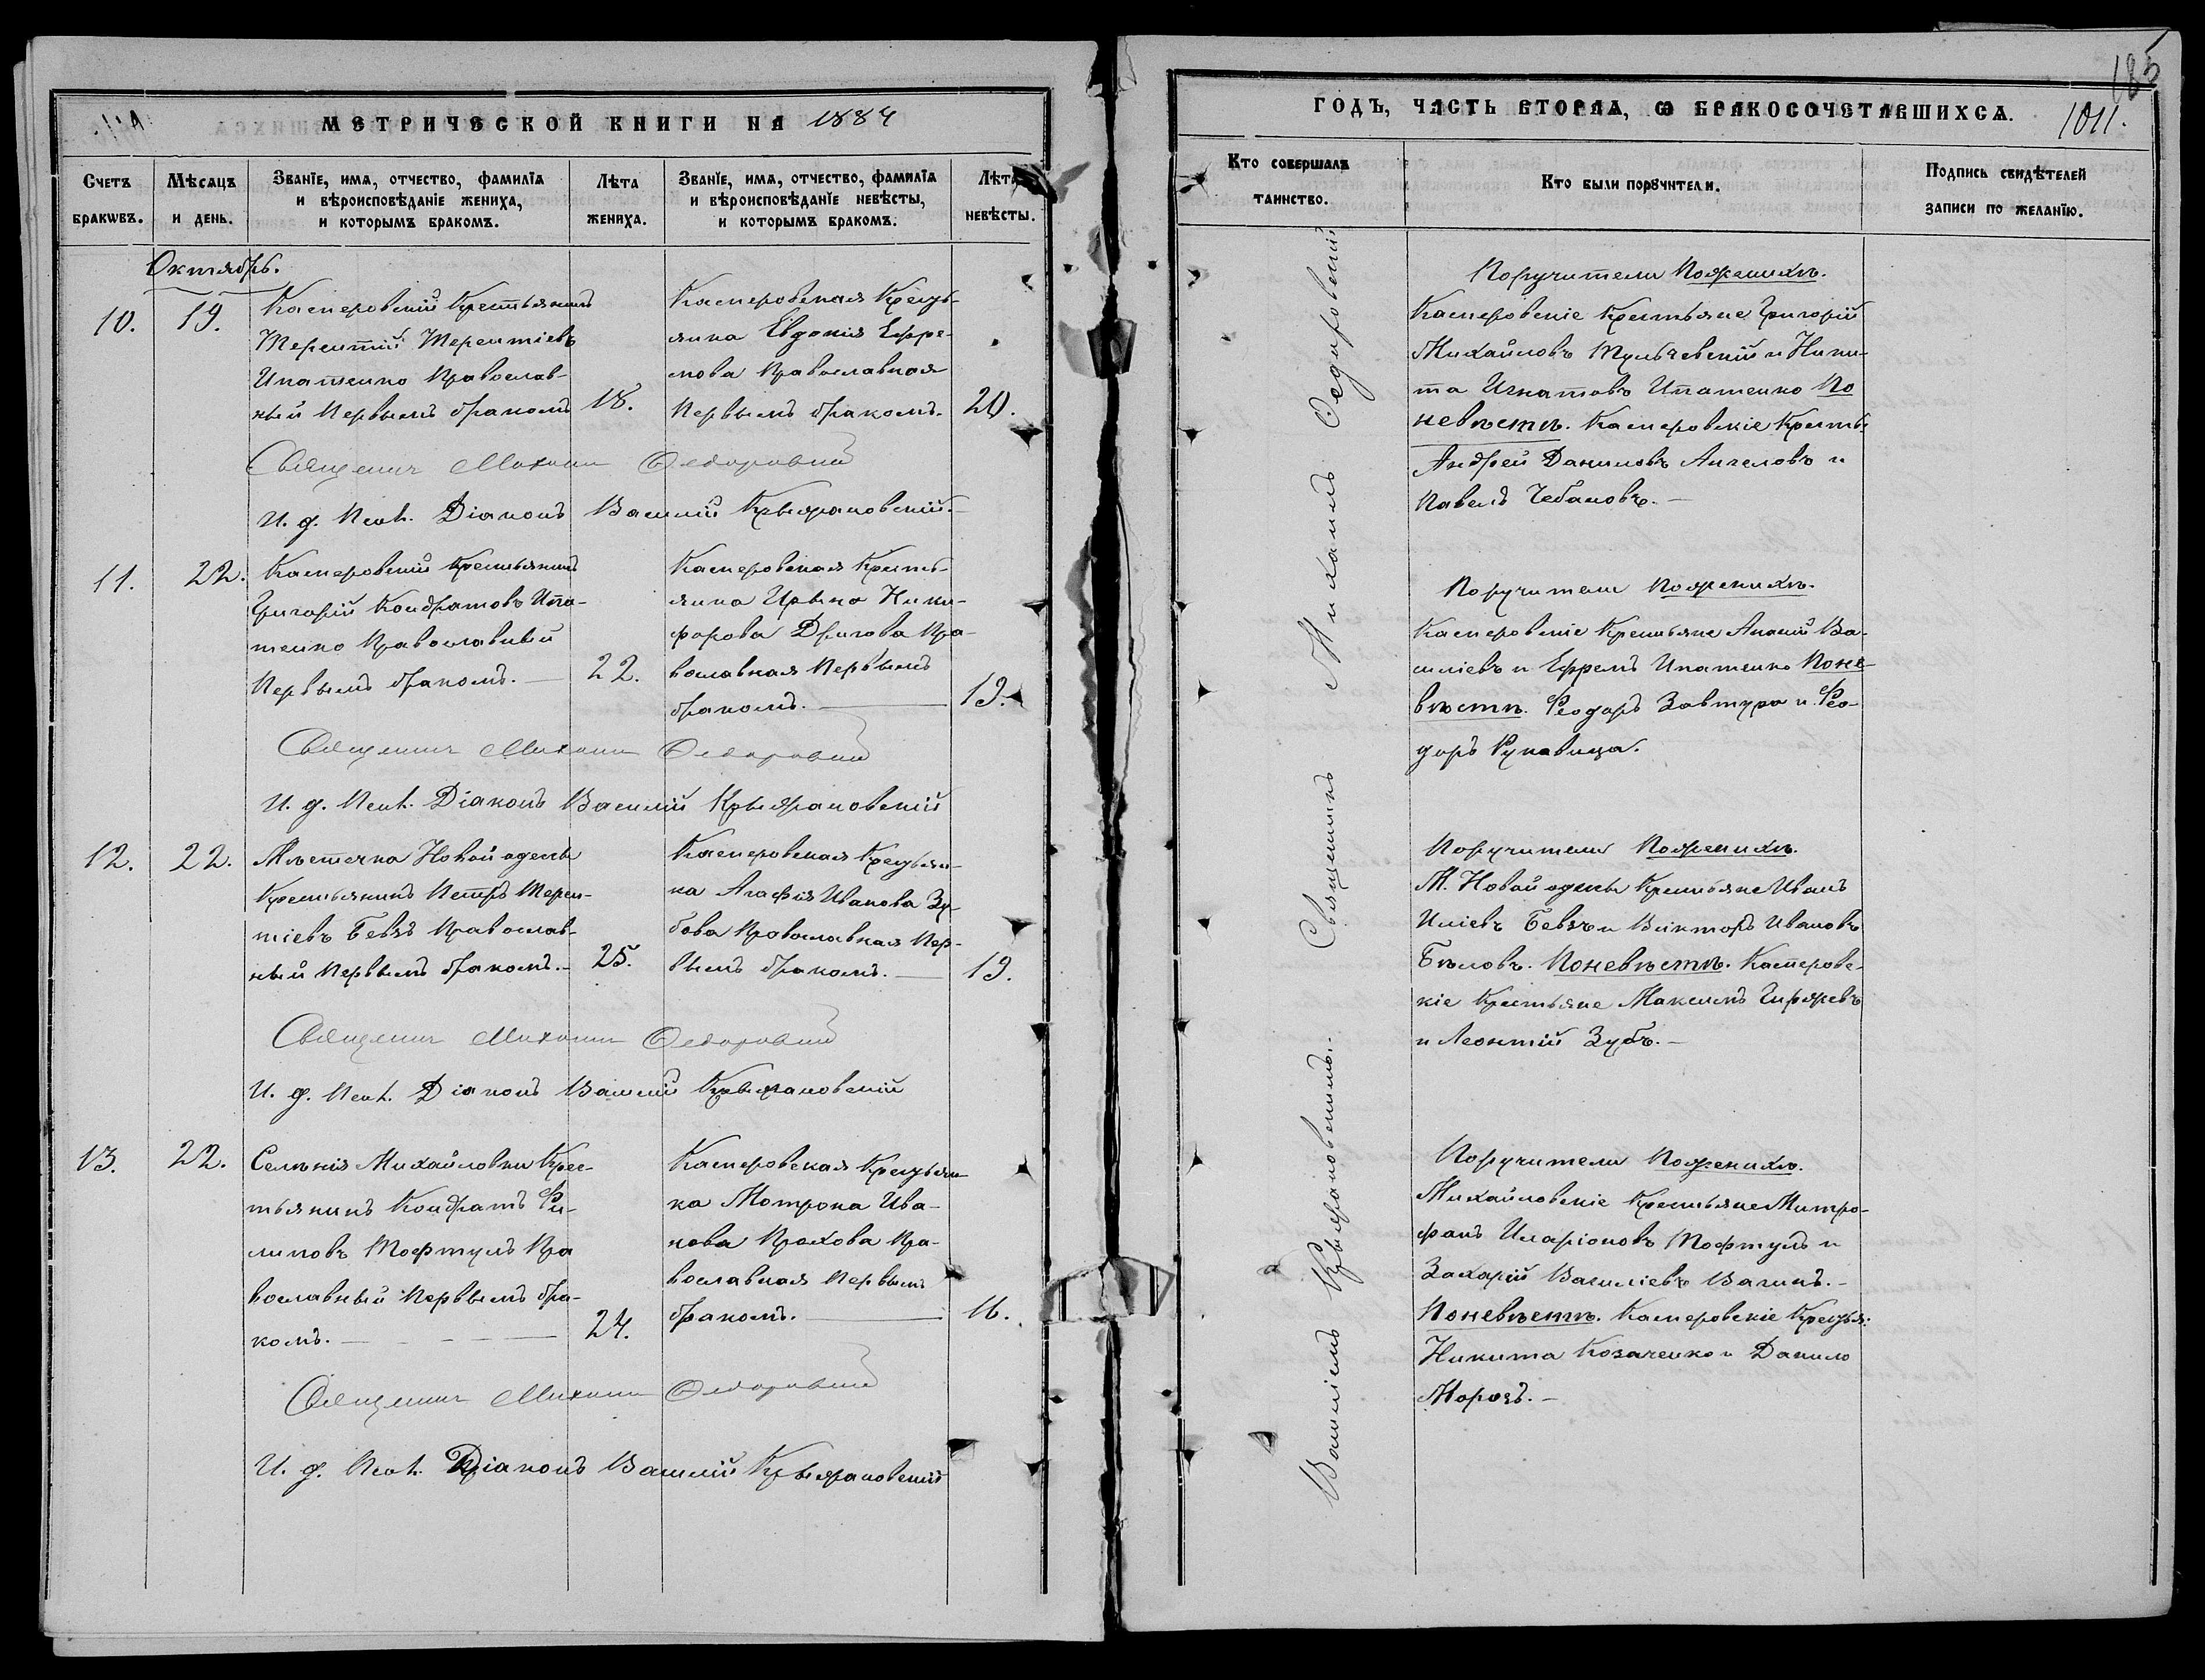 МЕТРИЧЕСКОЙ КНИГИ НА 1884
Счетъ браковъ.
Мѣсяцъ и день.
Званіе, имя, отчество, фамилія и вѣроисповѣданіе жениха, и которымъ бракомъ.
Лѣта жениха.
Званіе, имя, отчество, фамилія и вѣроисповѣданіе невѣсты, и которымъ бракомъ.
Лѣта невѣсты.
Октябрь.
10.
19.
Касперовскій Крестьянинъ
Терентій Терентіевъ
Ипатенко Православ-
ный Первымъ бракомъ
18.
Касперовская Кресть-
янка Евдокія Ефре-
мова Православная
Первымъ бракомъ.
20.
Священник Михаил Федоровский
И. д. Псал. Діаконъ Василій Крыжановскій.
11.
22.
Касперовскій Крестьянинъ
Григорій Кондратовъ Ипа-
тенко Православный
Первымъ бракомъ.
22.
Касперовская Кресть-
янка Ирына Ники-
форова Дригова Пра-
вославная Первымъ
бракомъ.
19.
Священник Михаил Федоровский
И. д. Псал. Діаконъ Василій Крыжановскій
12.
22.
Мѣстечка Новой одессы
Крестьянинъ Петръ Терен-
тіевъ Бевзъ Православ-
ный Первымъ бракомъ.
25.
Касперовская Крестьян-
ка Агафія Иванова Зу-
бова Православная Пер-
вымъ бракомъ.
19.
Священник Михаил Федоровский
И. д. Псал. Діаконъ Василій Крыжановскій
13.
22.
Селенія Михайловки Крес-
тьянинъ Кондратъ Фи-
липовъ Тофтулъ Пра
вославный Первымъ бра-
комъ.
24.
Касперовская Крестьян-
ка Мотрона Ива-
нова Прохова Пра-
вославная Первымъ
бракомъ.
16.
Священник Михаил Федоровский
И. д. Псал. Діаконъ Василій Крыжановскій
185
ГОДЪ, ЧАСТЬ ВТОРАЯ, Ѡ БРАКОСОЧЕТАВШИХСЯ.
1011.
Кто совершалъ таинство.
Кто были поручители.
Подпись свидѣтелей записи по желанію.
Священникъ Михаилъ Федоровскій
Василіемъ Крыжановскимъ.
Поручители Пожениху.
Касперовскіе Крестьяне Григорій
Михайловъ Тульчевскій и Ники-
та Игнатовъ Ипатенко По
невѣстѣ. Касперовскіе Кресть.
Андрей Даниловъ Ангеловъ и
Павелъ Чебановъ.
Поручители Пожениху.
Касперовскіе Крестьяне Ананій Ва-
силіевъ и Ефремъ Ипатенко Поне-
вѣстѣ. Феодоръ Завтура и Фео-
доръ Рукавица.
Поручители Пожениху.
М. Новой одессы Крестьяне Иванъ
Иліевъ Бевзъ и Викторъ Ивановъ
Бѣловъ. Поневѣстѣ. Касперовс-
кіе Крестьяне Максимъ Гиржевъ
и Леонтій Зубъ.
Поручители Пожениху.
Михайловскіе Крестьяне Митро-
фанъ Иларіоновъ Тофтулъ и
Захарій Василіевъ Вагинъ.
Поневѣстѣ. Касперовскіе Крестья:
Никита Козаченко и Данило
Морозъ.